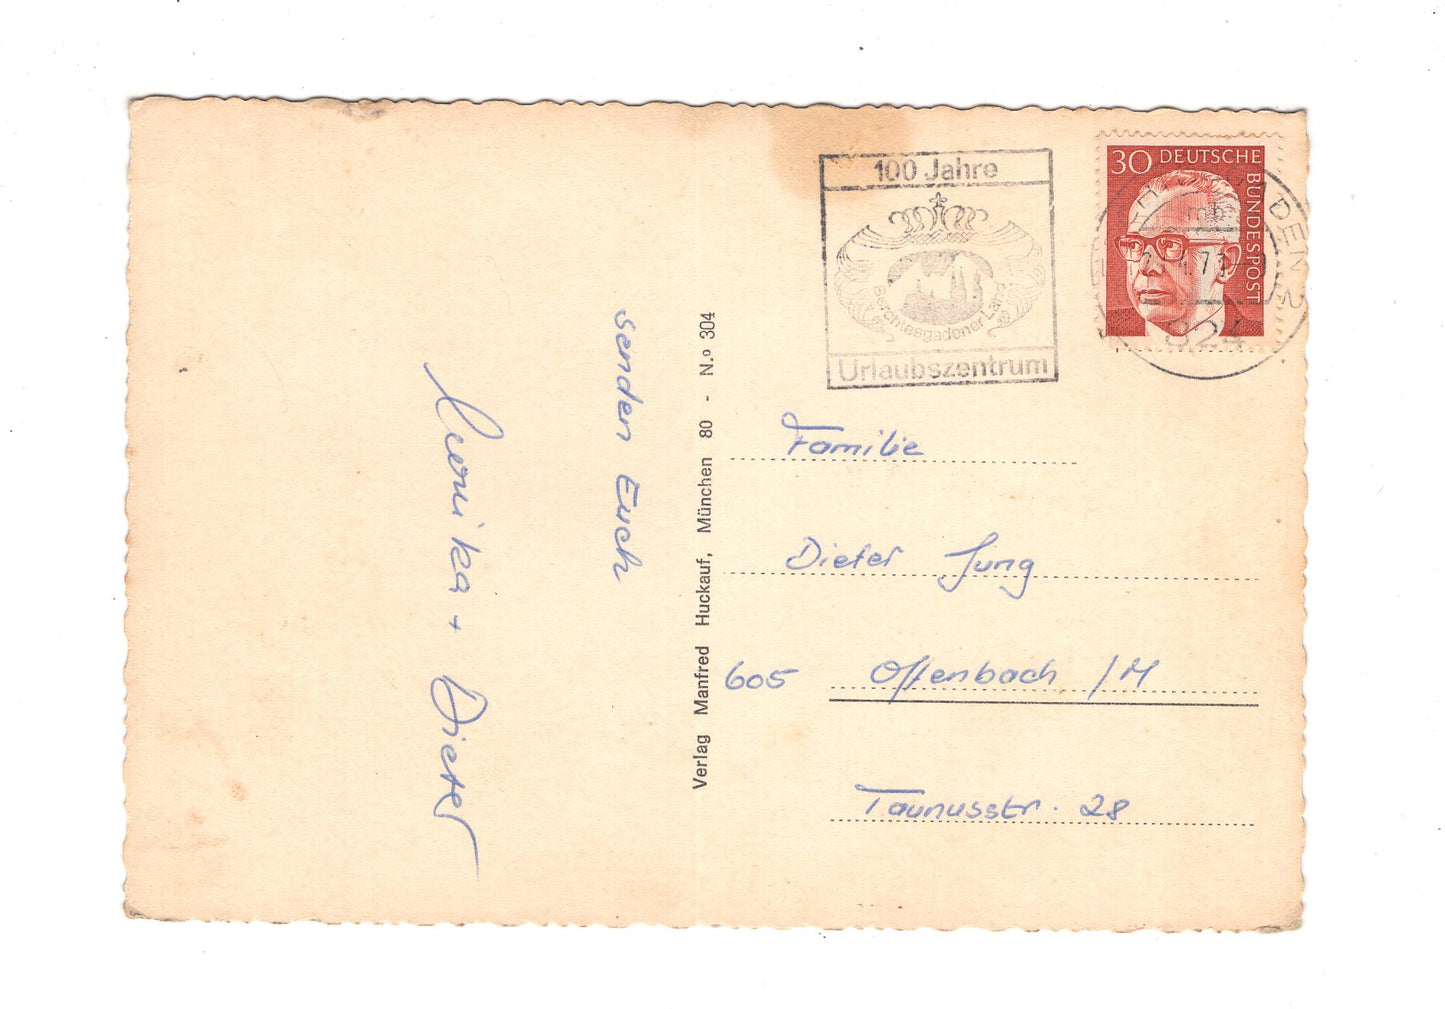 senden Euch
Monika + Dieter
Verlag Manfred Huckauf, München 80 - N.º 304
100 Jahre
Berchtesgadener Land
Urlaubszentrum
30 DEUTSCHE
BUNDESPOST
824
Familie
Dieter Jung
605 Offenbach /M
Taunusstr. 28